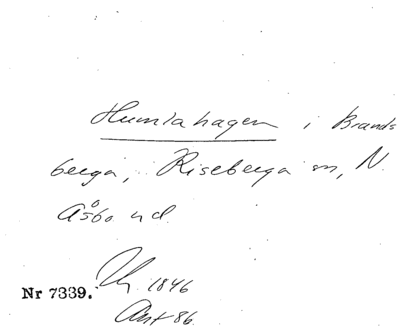 Humlahagen i Brands
berga, Riseberga sn, N.
Åsbo hd.
1846
Nr 7339.
Akt 86.